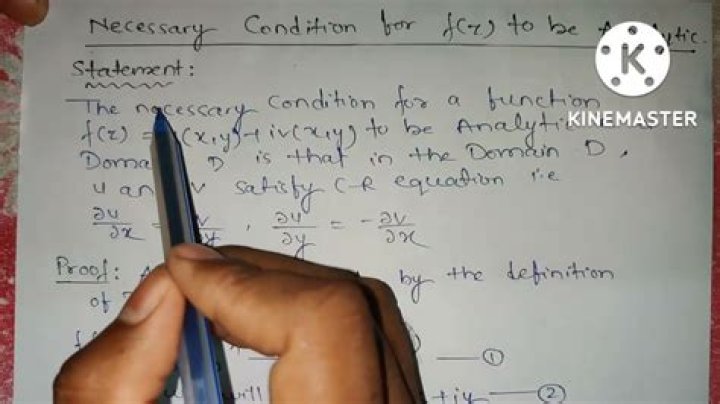 Necessary Condition for f(z) to be
Statement:
The necessary Condition for a function
f(z) = (x,y)+iv(x,y) to be Analytic
Domain D is that in the Domain D,
u an v satisfy C-R equation i.e
∂u/∂x = ∂v/∂y , ∂u/∂y = -∂v/∂x
Proof: by the definition
of
①
+iy ②
K
KINEMASTER